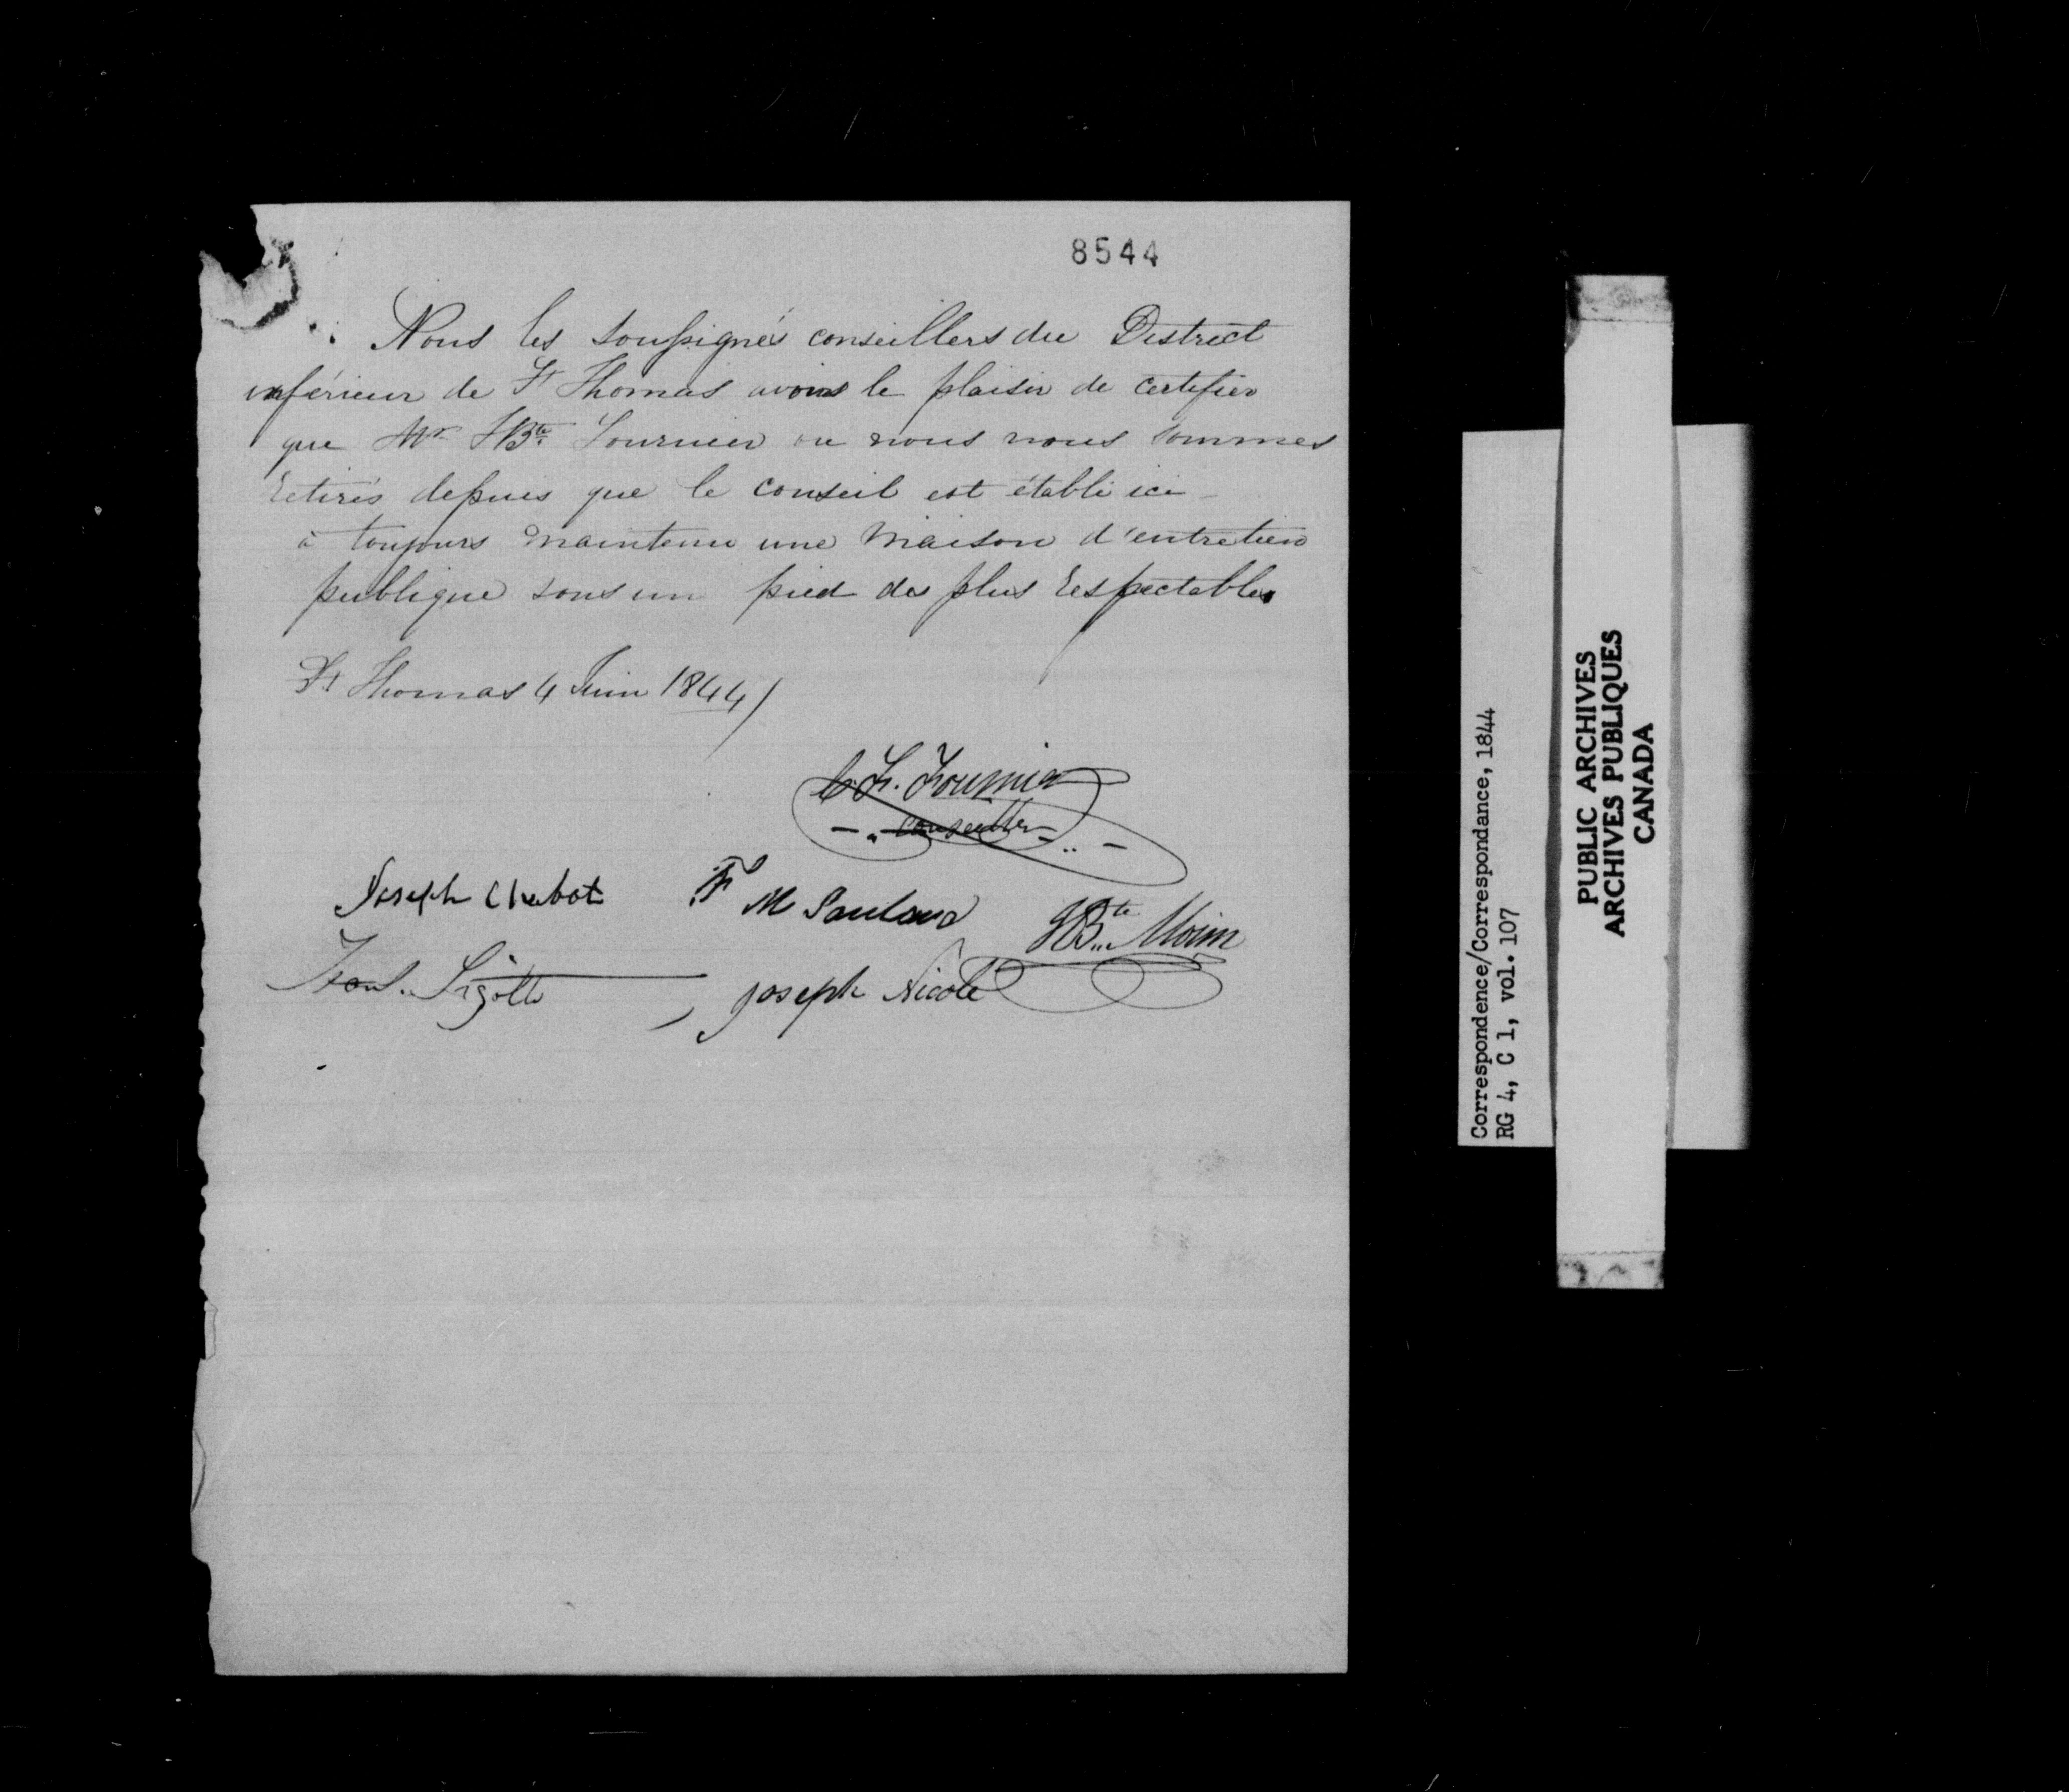 8544
Nous les soussignés conseillers du District
inférieur de St Thomas avons le plaisir de certifier
que Mr JBte Fournier ou nous nous sommes
retirés depuis que le conseil est établi ici
à toujours maintenu une maison d'entretien
publique sous un pied des plus respectables
St Thomas 4 Juin 1844
Fr. Fournier
conseiller
Joseph Chabot
F M
JBte Morin
Joseph Nicole
Correspondence/Correspondance, 1844
RG 4, C 1, vol. 107
PUBLIC ARCHIVES
ARCHIVES PUBLIQUES
CANADA